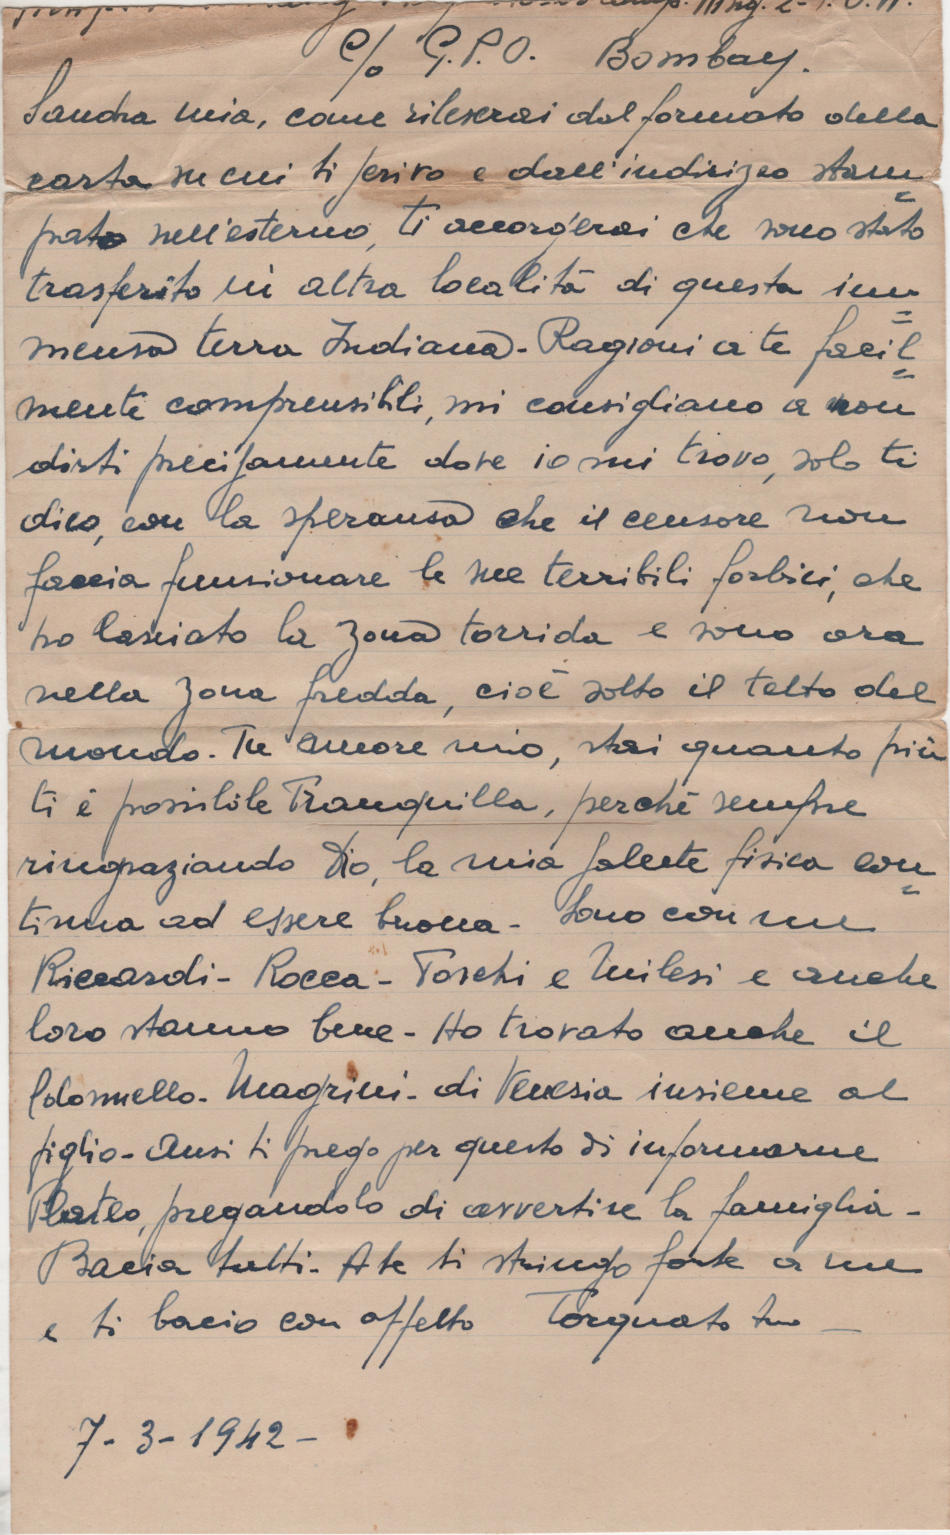 Camp. Wing. 2 - P.O.W.
C/o G.P.O. Bombay.
Sandra mia, come rileverai dal formato della
carta su cui ti scrivo e dall'indirizzo stam=
pato nell'esterno, ti accorgerai che sono stato
trasferito in altra località di questa im=
mensa terra Indiana - Ragioni a te facil=
mente comprensibili, mi consigliano a non
dirti precisamente dove io mi trovo, solo ti
dico, con la speransa che il censore non
faccia funsionare le sue terribili forbici, che
ho lasciato la zona torrida e sono ora
nella zona fredda, cioè sotto il tetto del
mondo. Tu amore mio, stai quanto più
ti è possibile Tranquilla, perchè sempre
ringraziando Dio, la mia salute fisica con=
tinua ad essere buona - Sono con me
Riccardi - Rocca - Toschi e Milesi e anche
loro stanno bene - Ho trovato anche il
Colonnello - Magrini - di Venesia insieme al
figlio - Ansi ti prego per questo di informarne
Plateo, pregandolo di avvertire la famiglia -
Bacia tutti - A te ti stringo forte a me
e ti bacio con affetto Torquato tuo -
7 - 3 - 1942 -